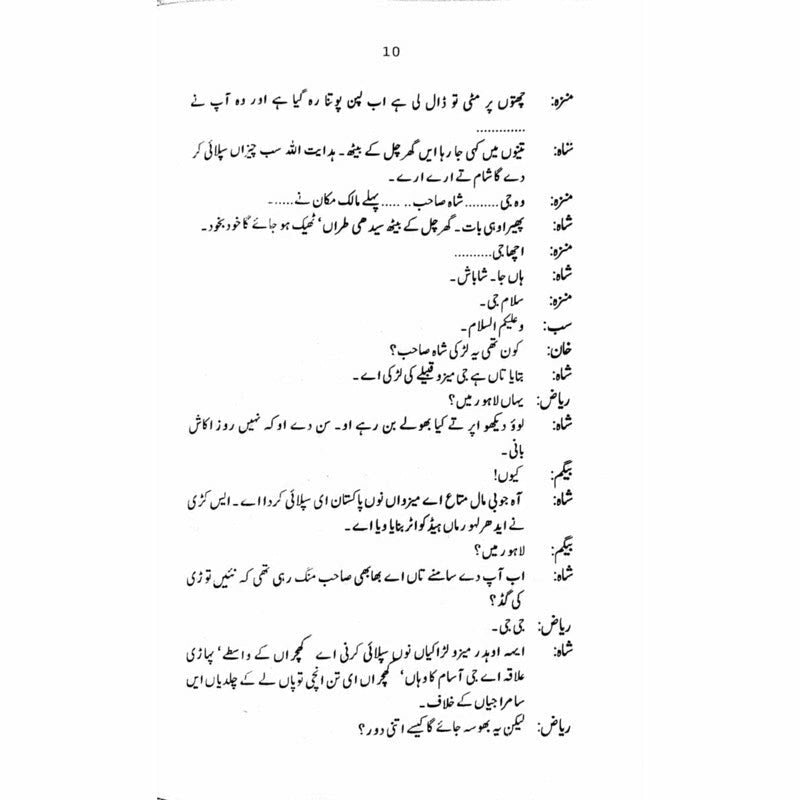 10
منزہ: چھتوں پر مٹی تو ڈال لی ہے اب لپن پوتنا رہ گیا ہے اور وہ آپ نے
.............
شاہ: تینوں میں کہی جا رہا ایں گھر چل کے بیٹھ۔ ہدایت اللہ سب چیزاں سپلائی کر
دے گا شام تے ارے ارے۔
منزہ: وہ جی......... شاہ صاحب....... پہلے مالک مکان نے......۔
شاہ: پھیر اوہی بات۔ گھر چل کے بیٹھ سیدھی طراں‘ ٹھیک ہو جائے گا خود بخود۔
منزہ: اچھا جی..........
شاہ: ہاں جا۔ شاباش۔
منزہ: سلام جی۔
سب: وعلیکم السلام۔
خان: کون تھی یہ لڑکی شاہ صاحب؟
شاہ: بتایا تاں ہے جی میزو قبیلے کی لڑکی اے۔
ریاض: یہاں لاہور میں؟
شاہ: لوؤ دیکھو اپر تے کیا بھولے بن رہے او۔ سن دے او کہ نہیں روز اکاش
بانی۔
بیگم: کیوں!
شاہ: آہ جو بی مال متاع اے میزواں نوں پاکستان ای سپلائی کردا اے۔ ایس کڑی
نے ایدھر لہور ماں ہیڈ کواٹر بنایا ویا اے۔
بیگم: لاہور میں؟
شاہ: اب آپ دے سامنے تاں اے بھابھی صاحب منگ رہی تھی کہ نئیں توڑی
کی گڈ؟
ریاض: جی جی۔
شاہ: ایہہ اوہدر میزو لڑاکیاں نوں سپلائی کرنی اے کھچراں کے واسطے‘ پہاڑی
علاقہ اے جی آسام کا وہاں‘ کھچراں ای تن انچی توپاں لے کے چلدیاں ایں
سامراجیاں کے خلاف۔
ریاض: لیکن یہ بھوسہ جائے گا کیسے اتنی دور؟